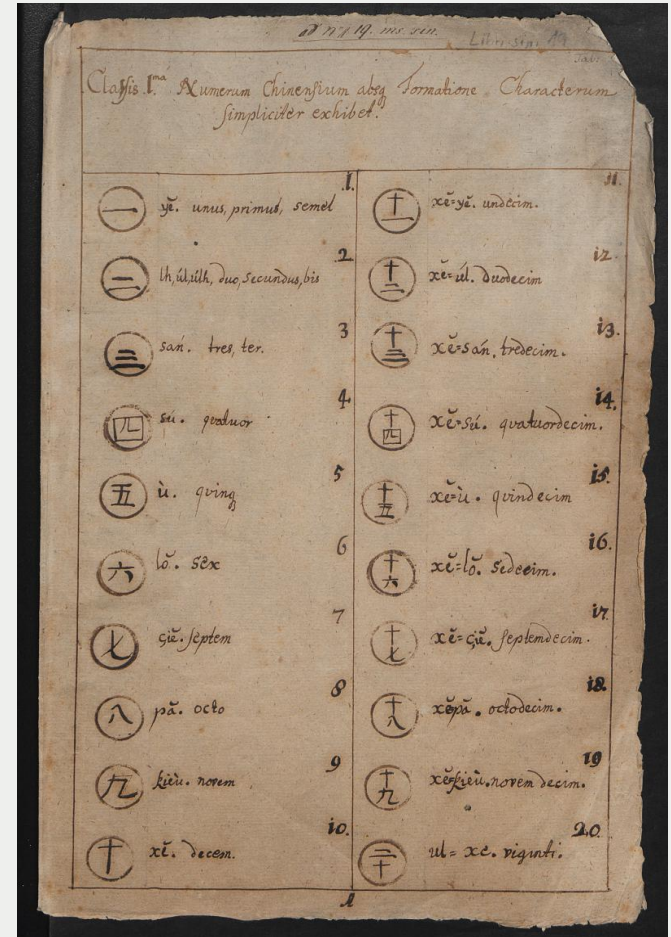 ad nṛ 19. ms. sin.
Libri sin. 19
Classis I.ma Numerum Chinensium absq Formatione Characterum
simpliciter exhibet.
1.
一 yĕ. unus, primus, semel
2
二 lh, úl, ùlh, duo, secundus, bis
3
三 san. tres, ter.
4
四 sú. qvatuor
5
五 ù. qvinq
6
六 lŏ. sex
7
七 çiĕ. septem
8
八 pă. octo
9
九 kieù. novem
10.
十 xĕ. decem.
11.
十一 xĕ=yĕ. undecim.
12
十二 xĕ=úl. duodecim
13.
十三 xĕ=san. tredecim.
14.
十四 xĕ=sú. qvatuordecim.
15.
十五 xĕ=ù. qvindecim
16.
十六 xĕ=lŏ. sedecim.
17
十七 xĕ=çiĕ. septemdecim.
18.
十八 xĕpă. octodecim.
19
十九 xĕ=kieù. novem decim.
20.
二十 ul=xe. viginti.
1